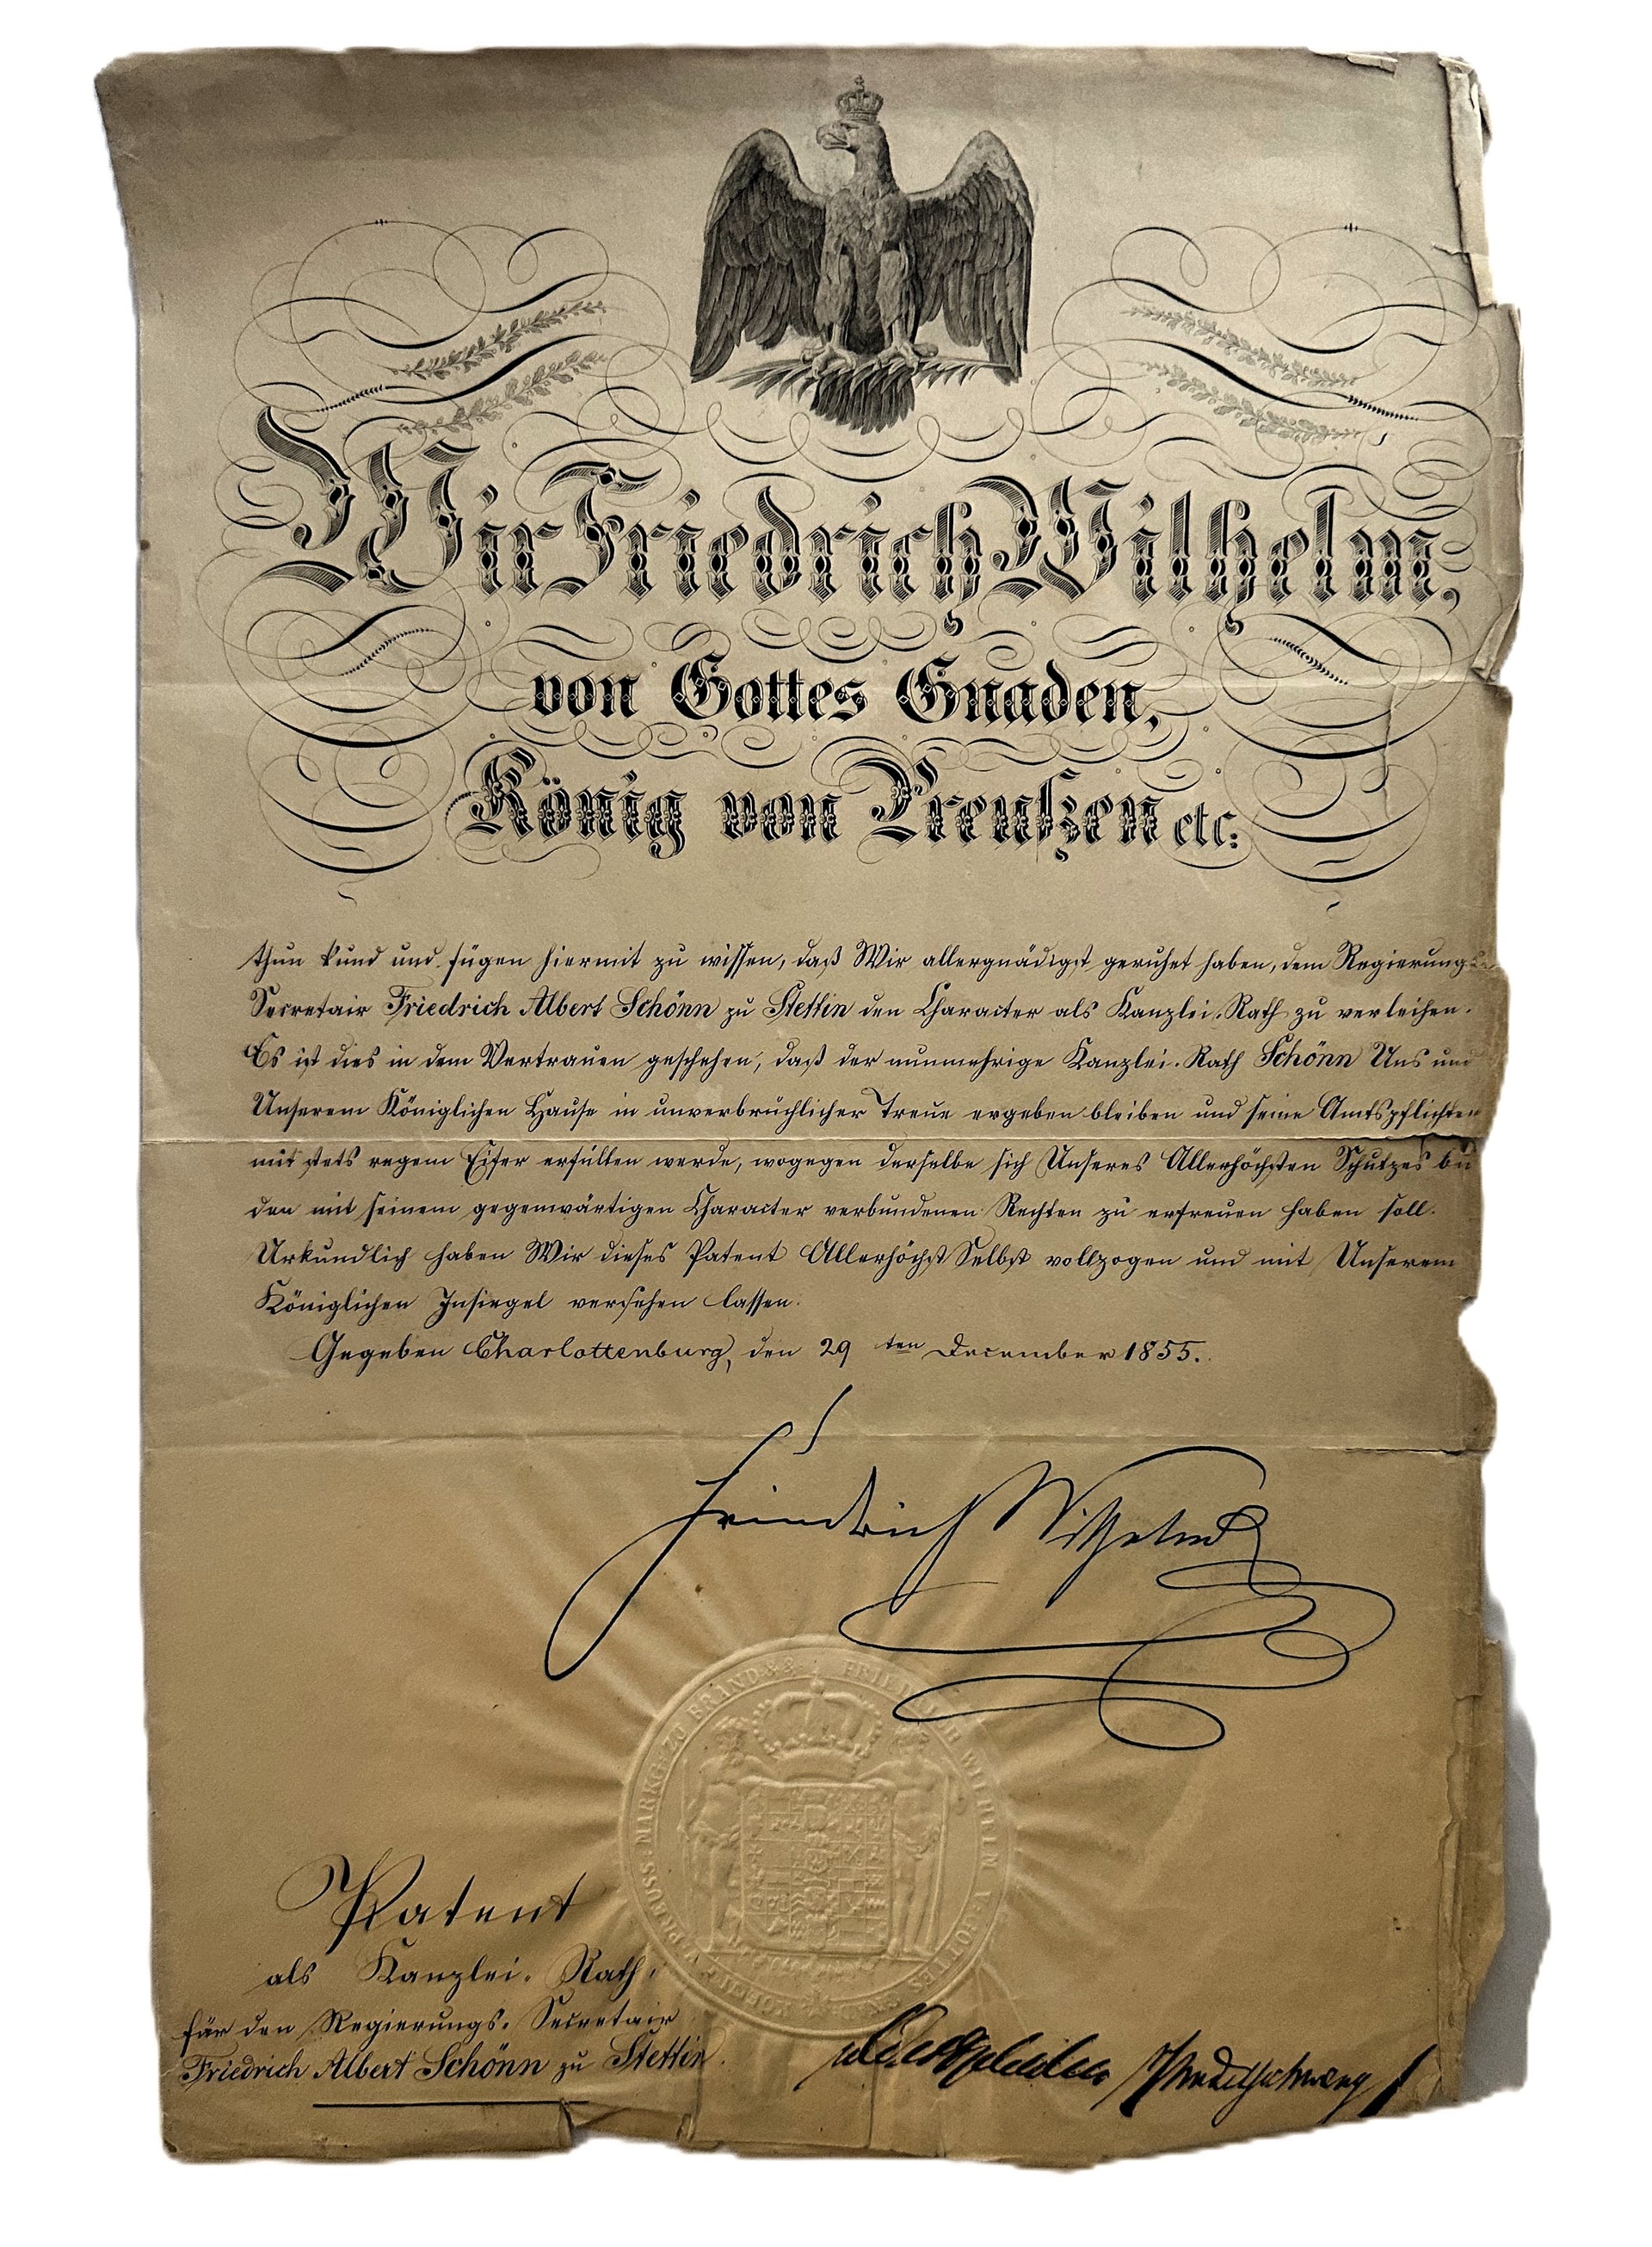 Wir Friedrich Wilhelm,
von Gottes Gnaden,
König von Preußen etc:
thun kund und fügen hiermit zu wissen, daß Wir allergnädigst geruhet haben, dem Regierungs-
Secretair Friedrich Albert Schönn zu Stettin den Character als Kanzlei-Rath zu verleihen.
Es ist dies in dem Vertrauen geschehen, daß der nunmehrige Kanzlei-Rath Schönn Uns und
Unserem Königlichen Hause in unverbrüchlicher Treue ergeben bleiben und seine Amtspflichten
mit stets regem Eifer erfüllen werde, wogegen derselbe sich Unseres Allerhöchsten Schutzes bei
den mit seinem gegenwärtigen Character verbundenen Rechten zu erfreuen haben soll.
Urkundlich haben Wir dieses Patent Allerhöchst Selbst vollzogen und mit Unserem
Königlichen Insiegel versehen lassen.
Gegeben Charlottenburg, den 29 ten December 1855.
Friedrich Wilhelm
FRIEDRICH WILHELM V. GOTTES KOENIG V. PREUSS. MARKG. ZU BRAND.
Patent
als Kanzlei-Rath
für den Regierungs-Secretair
Friedrich Albert Schönn zu Stettin.